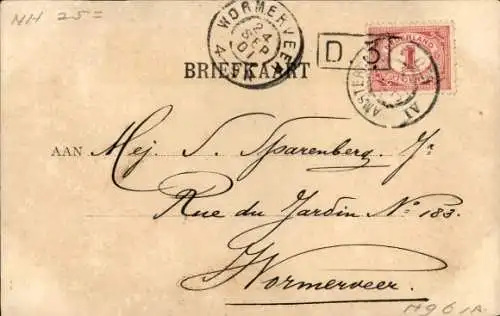 NH 25=
WORMERVEER
24 SEP 01
D 3
NEDERLAND
1
AMSTERDAM
BRIEFKAART
AAN Mej. S. Sparenberg. Jr
Rue du Jardin No 183.
Wormerveer.